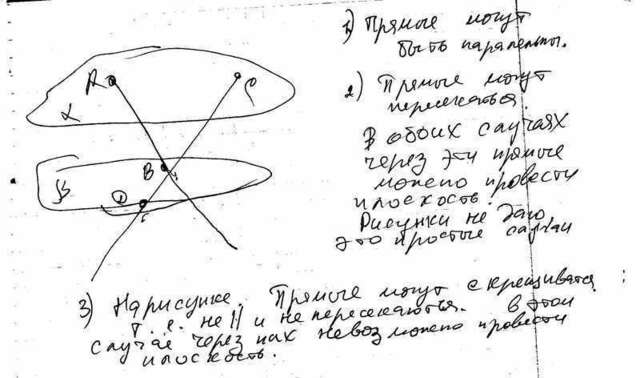 1) Прямые могут
быть паралельны.
2) Прямые могут
пересекаться.
В обоих случаях
через эти прямые
можно провести
плоскость.
Рисунки не даю
это простые случаи
A
C
α
B
β
D
3) На рисунке. Прямые могут скрещиватся
т.е. не || и не пересекаються. в этом
случае через них невозможно провести
плоскость.